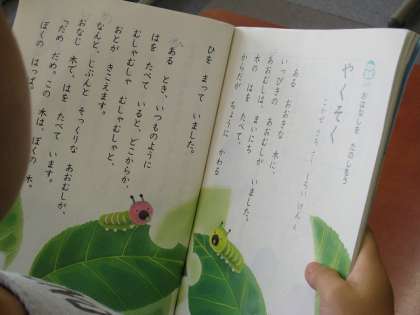 おはなしを たのしもう
やくそく
ある おおきな 木に、
いっぴきの あおむしが いました。
あおむしは、まいにち
木の はを たべて、
からだが ちょうに かわる
ひを まって いました。
ある とき、いつものように
はを たべて いると、どこからか、
むしゃむしゃ むしゃむしゃと、
おとが きこえます。
なんと、じぶんと そっくりな あおむしが、
おなじ 木で、はを たべて います。
「だめ だめ。この 木は、ぼくの 木。
ぼくの はっぱ。